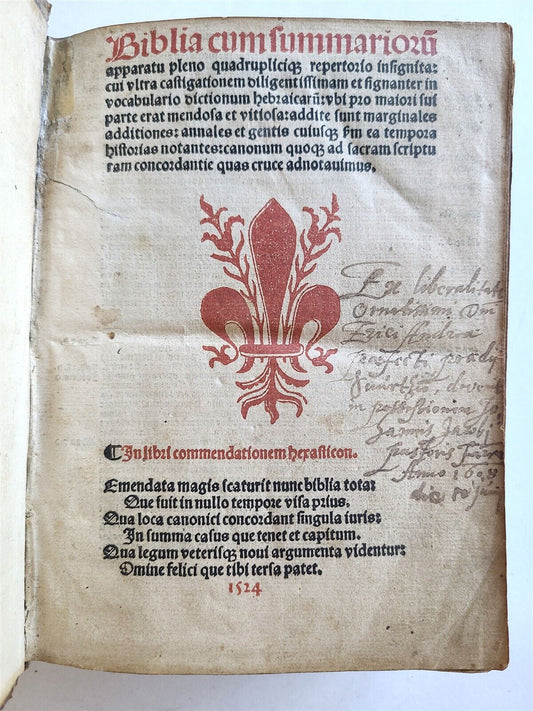 Biblia cum summariorū
apparatu pleno quadrupliciqꝫ repertorio insignita:
cui vltra castigationem diligentissimam et signanter in
vocabulario dictionum hebraicarū: vbi pro maiori sui
parte erat mendosa et vitiosa: addite sunt marginales
additiones: annales et gentis cuiusqꝫ ꝑm ea tempora
historias notantes: canonum quoqꝫ ad sacram scriptu
ram concordantie quas cruce adnotauimus.
Ex liberalitate
Ornatissimi Dn
Erici
in possessionem Jo
hannis Jacobi
pastoris
Anno 16
die
¶ In libri commendationem hexasticon.
Emendata magis scaturit nunc biblia tota:
Que fuit in nullo tempore visa prius.
Qua loca canonici concordant singula iuris:
In summa casus que tenet et capitum.
Qua legum veterisqꝫ noui argumenta videntur:
Omine felici que tibi tersa patet.
1524